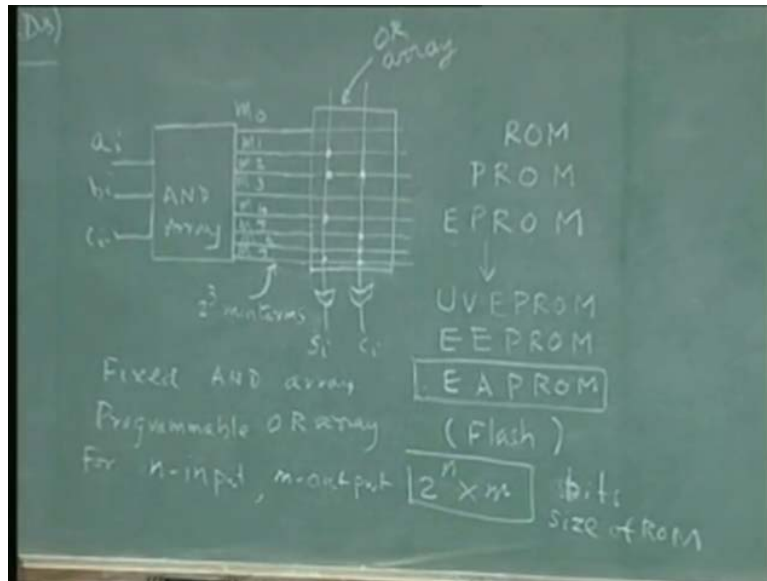 OR
array
ai
bi
ci
AND
Array
m0
m1
m2
m3
m4
2^3 minterms
Si
Ci
ROM
PROM
EPROM
UVEPROM
EEPROM
EAPROM
(Flash)
Fixed AND array,
Programmable OR array
For n-input, m-output 2^n x m bits
size of ROM